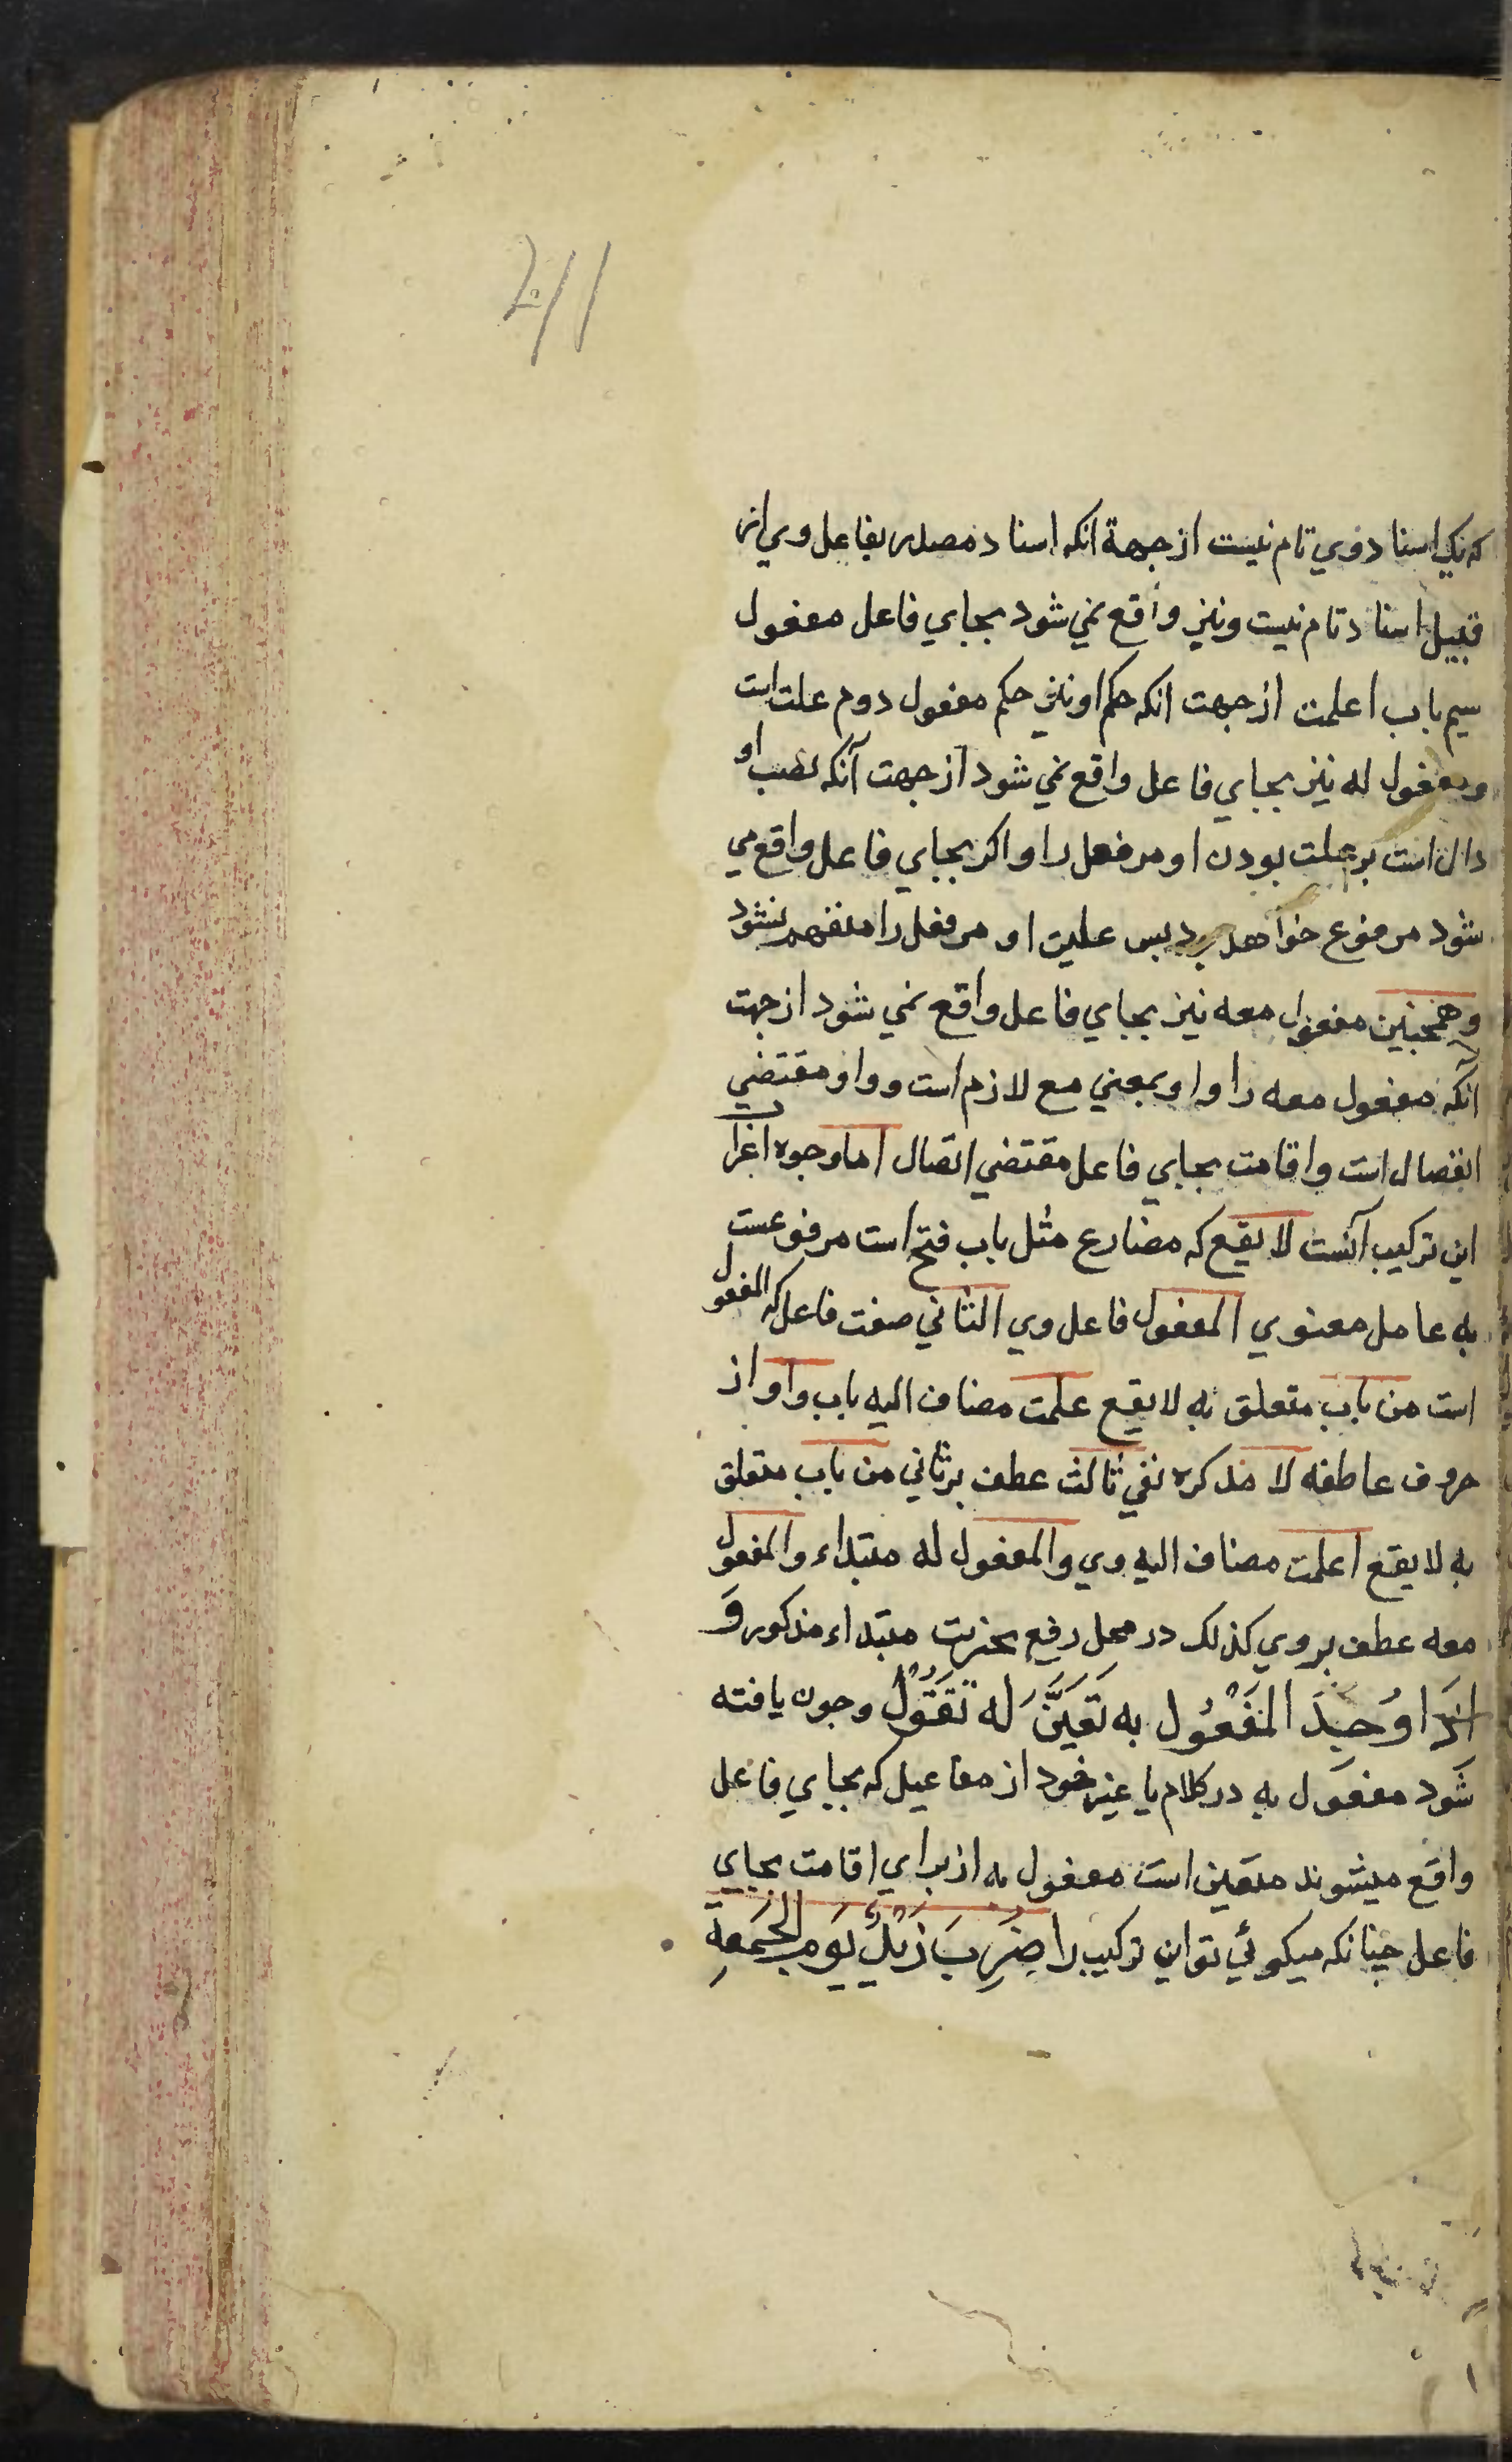 که یک اسناد وي تام نیست از جهة انکه اسناد مصدر بفاعل وي از
قبیل اسناد تام نیست و نیز واقع نمي شود بجاي فاعل مفعول
سیم باب اعلمت از جهت انکه حکم او نیز حکم مفعول دوم علمت است
و مفعول له نیز بجاي فاعل واقع نمي شود از جهت آنکه نصب او
دال است بر علت بودن او مر فعل را و اکر بجاي فاعل واقع مي
شود مرفوع خواهد بود بس علیت او مر فعل را منفهم نشود
و همجنین مفعول معه نیز بجاي فاعل واقع نمي شود از جهت
آنکه مفعول معه را واو بمعني مع لازم است و واو مقتضي
انفصال است و اقامت بجاي فاعل مقتضي اتصال اما وجوه اعراب
این ترکیب آنست لا یقع که مضارع مثل باب فتح است مرفوعست
به عامل معنوي المفعول فاعل وي الثاني صفت فاعل که المفعول
است من باب متعلق به لا یقع علمت مضاف الیه باب واو از
حروف عاطفه لا مذکره نفي ثالث عطف بر ثاني من باب متعلق
به لا یقع اعلمت مضاف الیه وي والمفعول له مبتداء والمفعول
معه عطف بر وي کذلک در محل رفع بخبریت مبتداء مذکور وَ
اذَا وُجِدَ المَفْعُول به تَعَيَّنَ لَه تَقُوْلُ وجون یافته
شود مفعول به در کلام یا غیر خود از مفاعیل که بجاي فاعل
واقع میشوند متعین است مفعول به از براي اقامت بجاي
فاعل جنانکه میکوئي تو این ترکیب را ضُرِبَ زَیْدٌ یَومَ الجُمَعَةِ